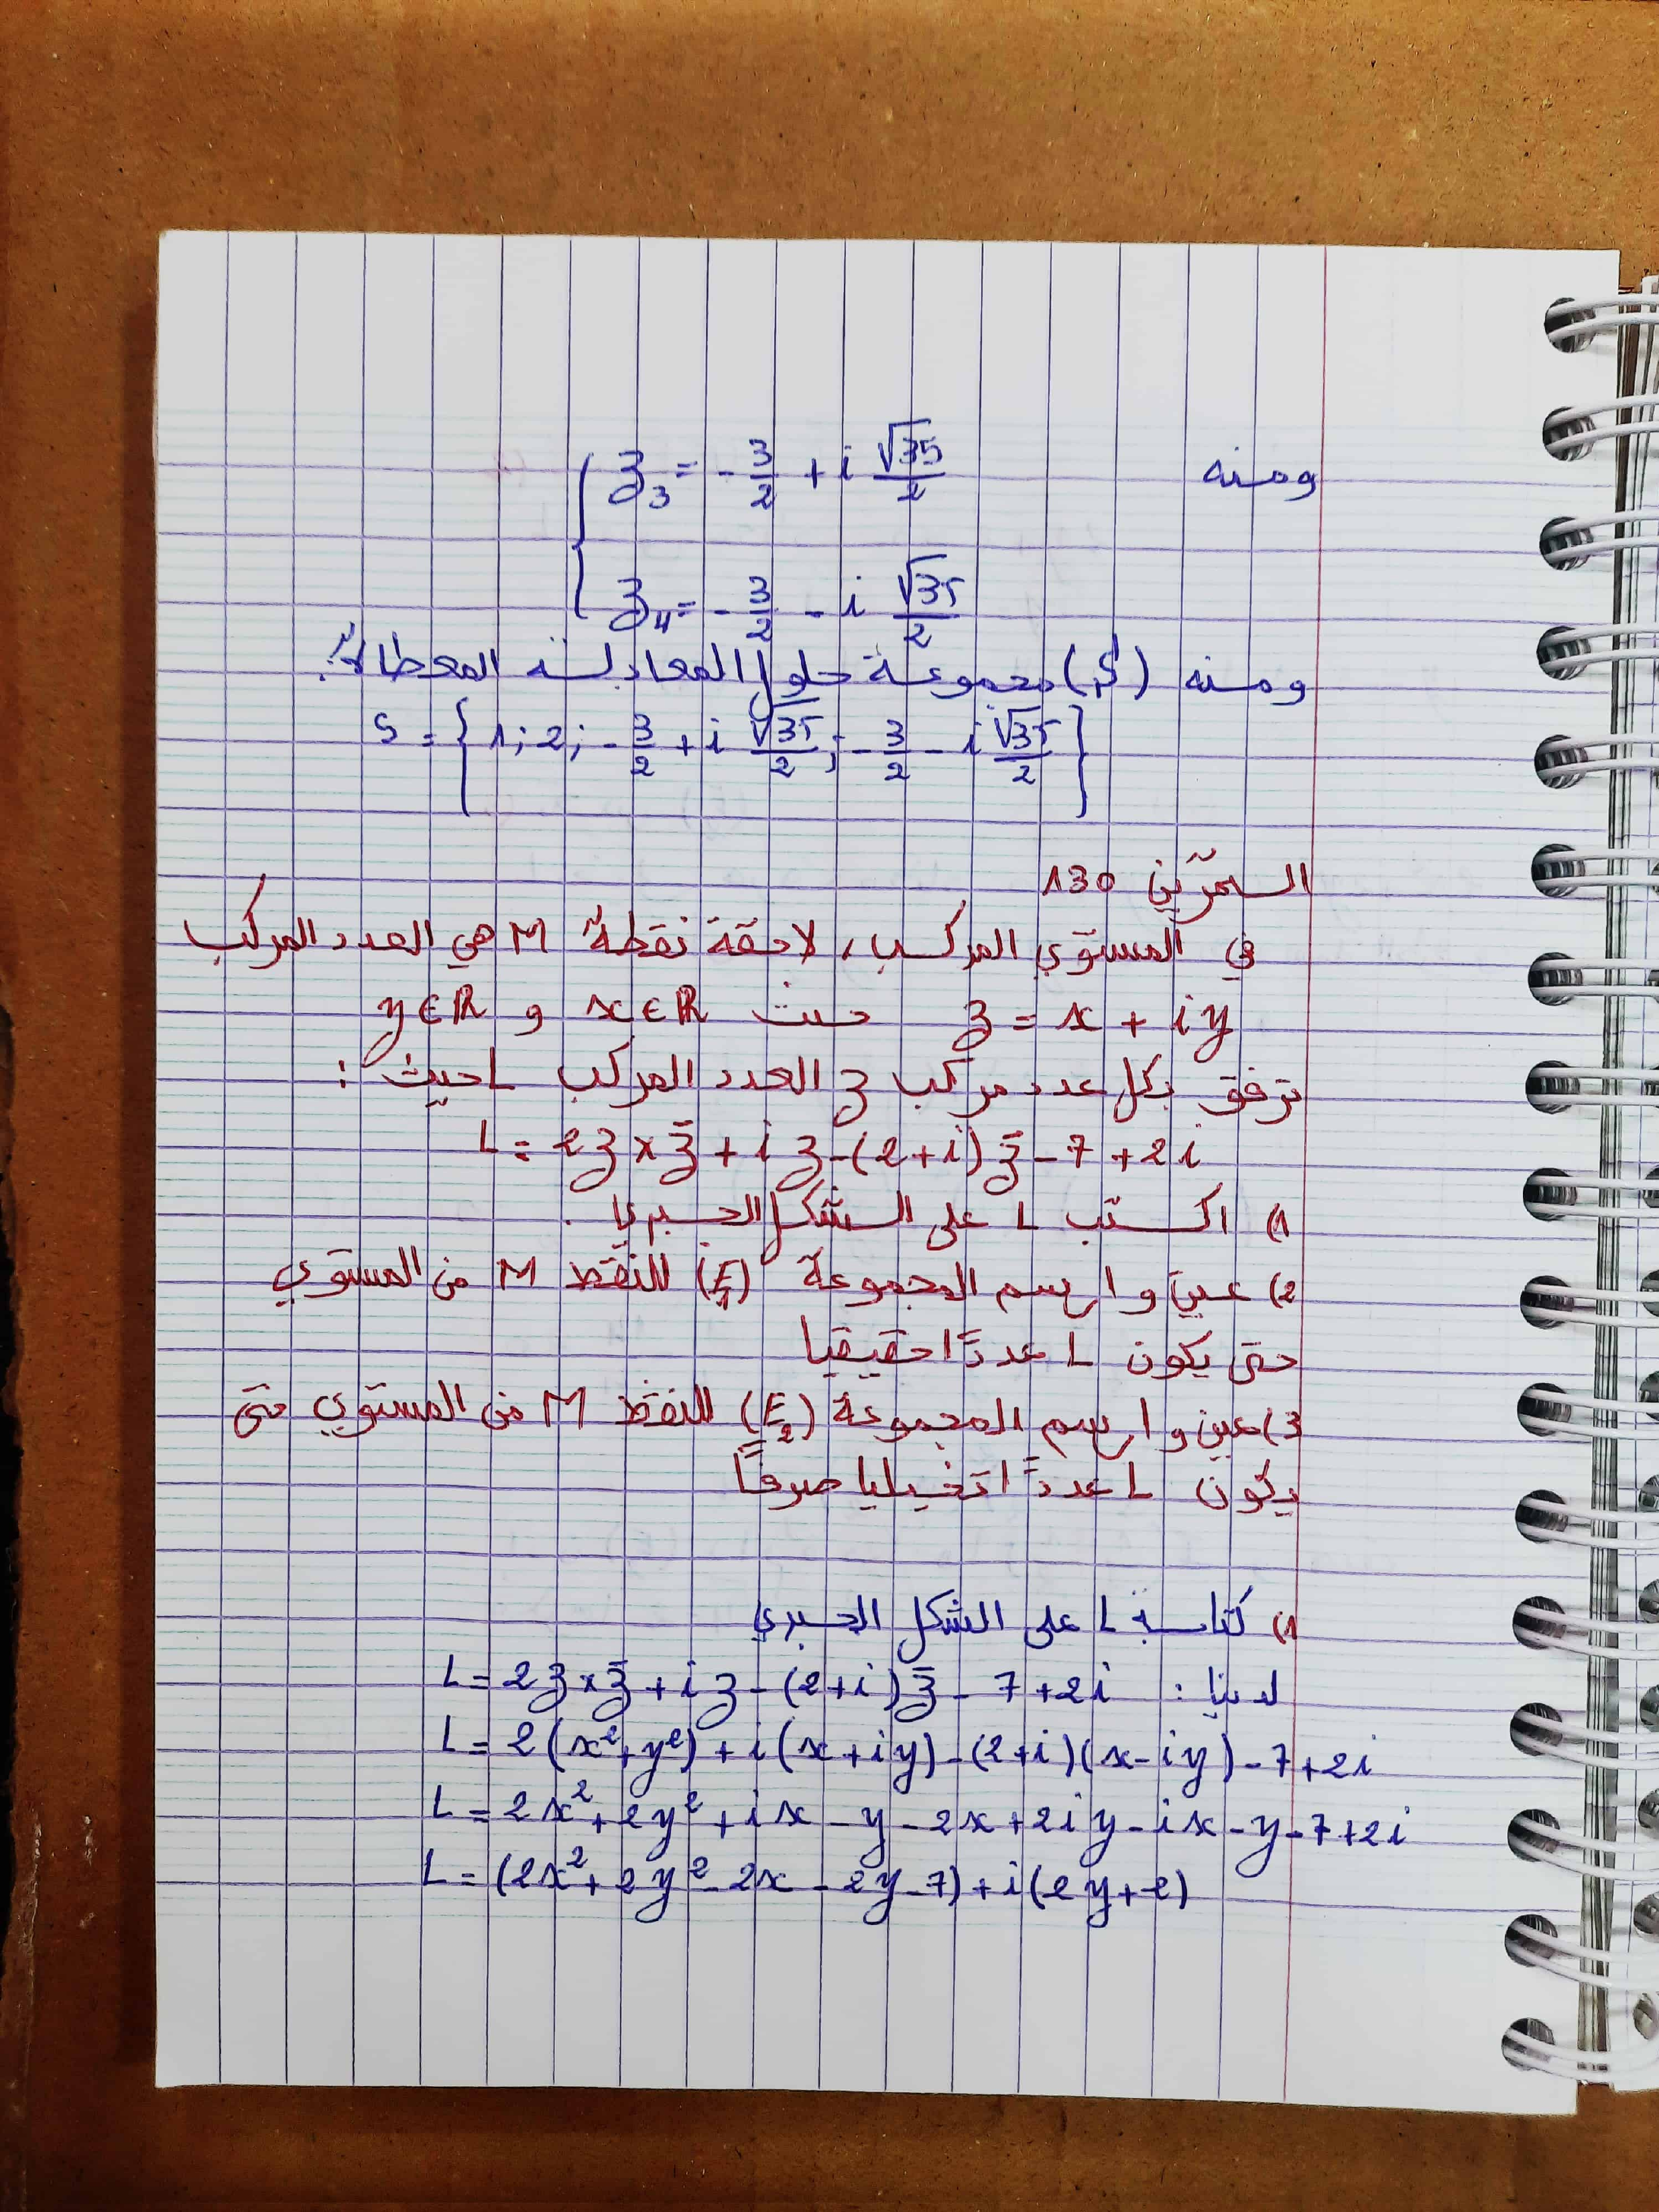 ومنه { z₃ = -3/2 + i √35/2
z₄ = -3/2 - i √35/2
ومنه (S) مجموعة حلول المعادلة المعطاة:
S = { 1 ; 2 ; -3/2 + i √35/2 ; -3/2 - i √35/2 }
التمرين 130
في المستوي المركب، لاحقة نقطة M هي العدد المركب
z = x + iy حيث x∈ℝ و y∈ℝ
نرفق بكل عدد مركب z العدد المركب L حيث :
L = 2z × z̄ + iz - (2+i) z̄ - 7 + 2i
1) اكتب L على الشكل الجبري .
2) عين و ارسم المجموعة (E₁) للنقط M من المستوي
حتى يكون L عددًا حقيقيا
3) عين و ارسم المجموعة (E₂) للنقط M من المستوي حتى
يكون L عددًا تخيليا صرفًا
1) كتابة L على الشكل الجبري
لدينا : L = 2z × z̄ + iz - (2+i) z̄ - 7 + 2i
L = 2(x² + y²) + i(x+iy) - (2+i)(x-iy) - 7 + 2i
L = 2x² + 2y² + ix - y - 2x + 2iy - ix - y - 7 + 2i
L = (2x² + 2y² - 2x - 2y - 7) + i(2y+2)